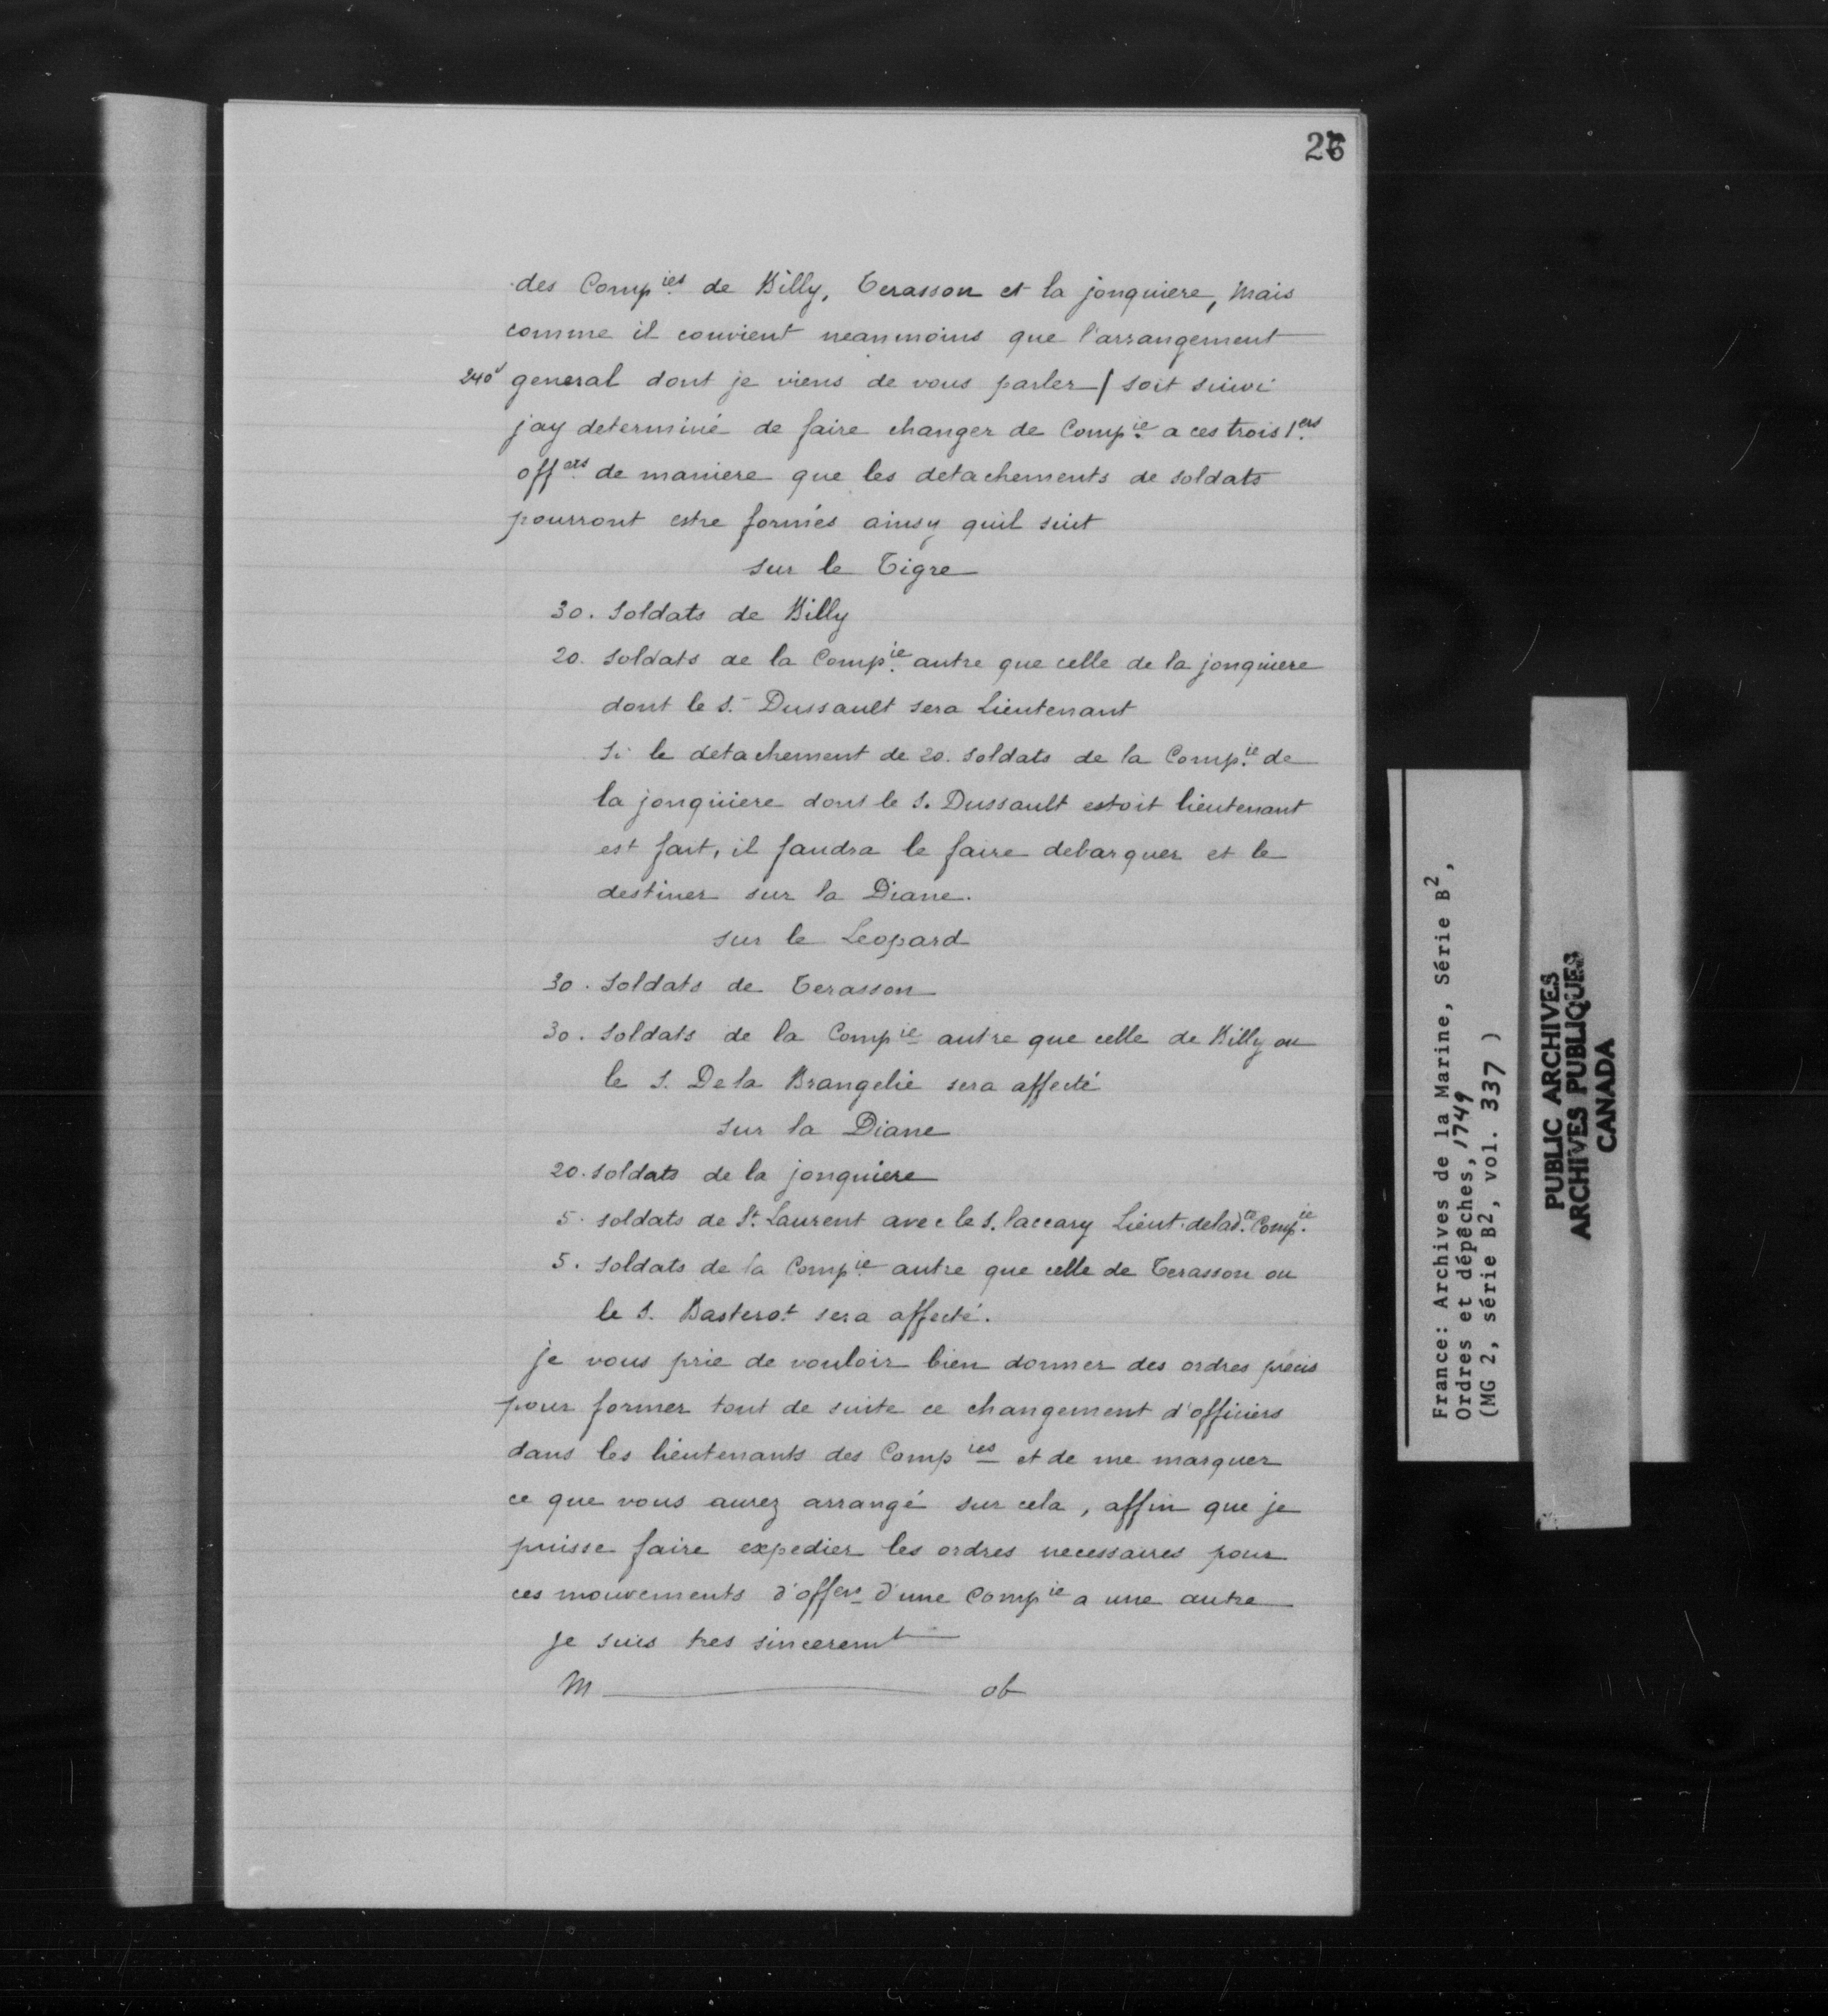 26
des Compies de Billy, Terasson et la jonquiere, Mais
comme il convient neanmoins que l'arrangement
240v general dont je viens de vous parler / soit suivi
jay determiné de faire changer de Compie a ces trois 1ers
offers de maniere que les detachements de soldats
pourront estre formés ainsy quil suit
sur le Tigre
30. Soldats de Billy
20. soldats de la Compie autre que celle de la jonquiere
dont le S. Dussault sera Lieutenant
Si le detachement de 20. soldats de la Compie de
la jonquiere dont le S. Dussault estoit lieutenant
est fait, il faudra le faire debarquer et le
destiner sur la Diane.
sur le Leopard
30. Soldats de Terasson
30. Soldats de la Compie autre que celle de Billy ou
le S. De la Brangelie sera affecté
sur la Diane
20. soldats de la jonquiere
5. soldats de St Laurent avec le S. Laccary Lieut. de lad.te Compie
5. soldats de la Compie autre que celle de Terasson ou
le S. Basterot sera affecté.
je vous prie de vouloir bien donner des ordres précis
pour former tout de suite ce changement d'officiers
dans les lieutenants des Compies et de me marquer
ce que vous aurez arrangé sur cela, affin que je
puisse faire expedier les ordres necessaires pour
ces mouvements d'offers d'une Compie a une autre
je suis tres sinceremt
M ob
France: Archives de la Marine, Série B2,
Ordres et dépêches, 1749
(MG 2, série B2, vol. 337 )
PUBLIC ARCHIVES
ARCHIVES PUBLIQUES
CANADA